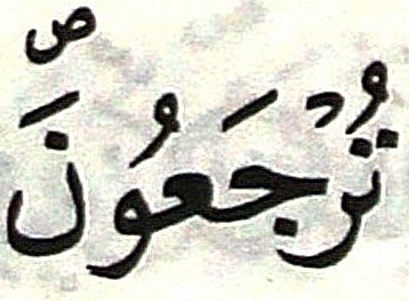 تُرْجَعُونَ ۖص